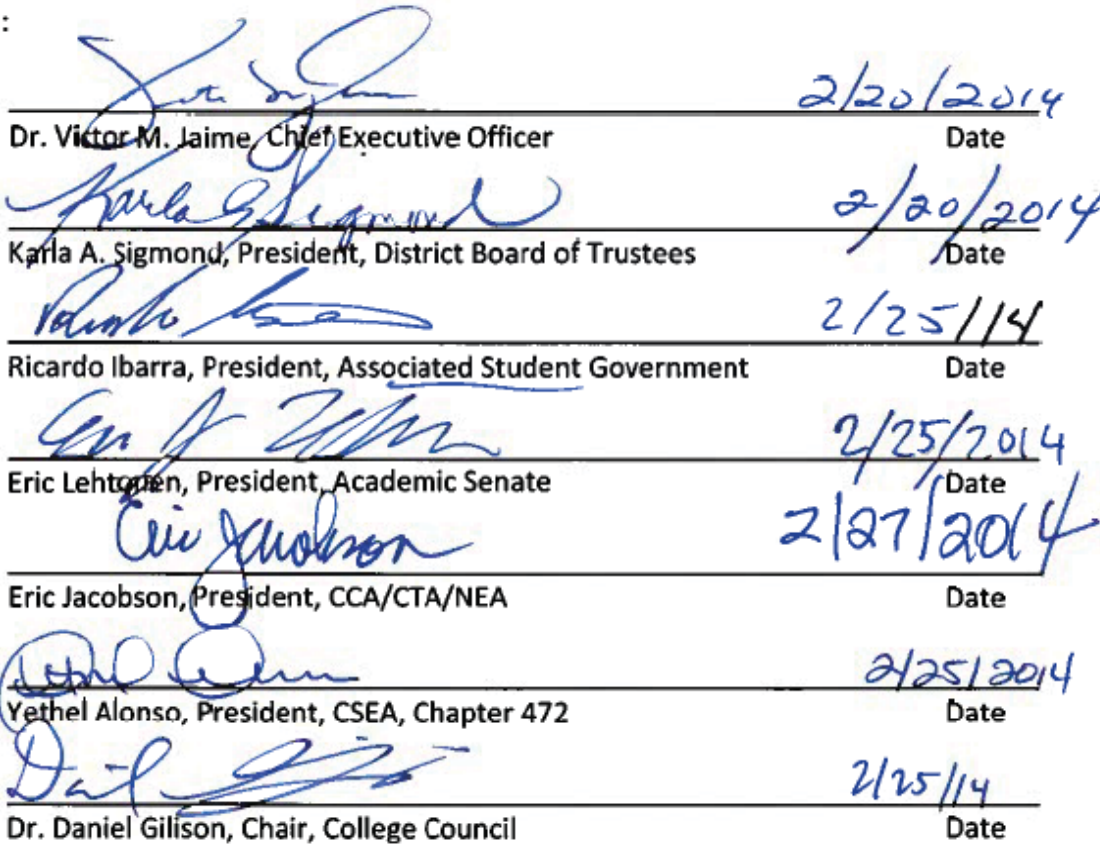 :
2/20/2014
Dr. Victor M. Jaime, Chief Executive Officer Date
Karla A Sigmond 2/20/2014
Karla A. Sigmond, President, District Board of Trustees Date
2/25/14
Ricardo Ibarra, President, Associated Student Government Date
2/25/2014
Eric Lehtonen, President, Academic Senate Date
Eric Jacobson 2/27/2014
Eric Jacobson, President, CCA/CTA/NEA Date
2/25/2014
Yethel Alonso, President, CSEA, Chapter 472 Date
2/25/14
Dr. Daniel Gilison, Chair, College Council Date